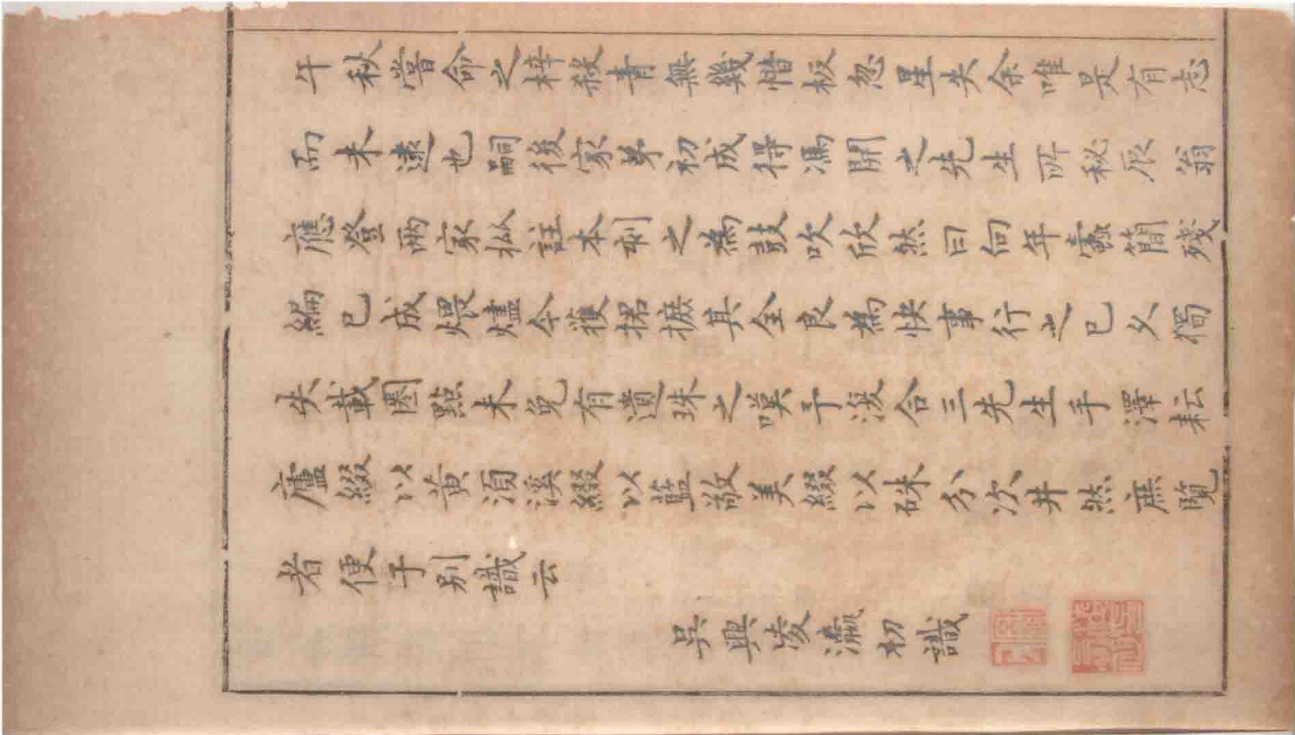 午秋嘗命之梓殺青無幾惜板忽星失余唯是有志
而未逮也嗣後家弟初成得馮開之先生所秘辰翁
應登兩家批註本刻之為鼓吹欣然曰向年蠹簡殘
編已成煨燼今獲捃摭其全良為快事行之已久獨
失載圈點未免有遺珠之嘆予復合三先生手澤耘
廬綴以黃須溪綴以藍敬美綴以硃分次井然庶覽
者便于別識云
吳興凌瀛初識